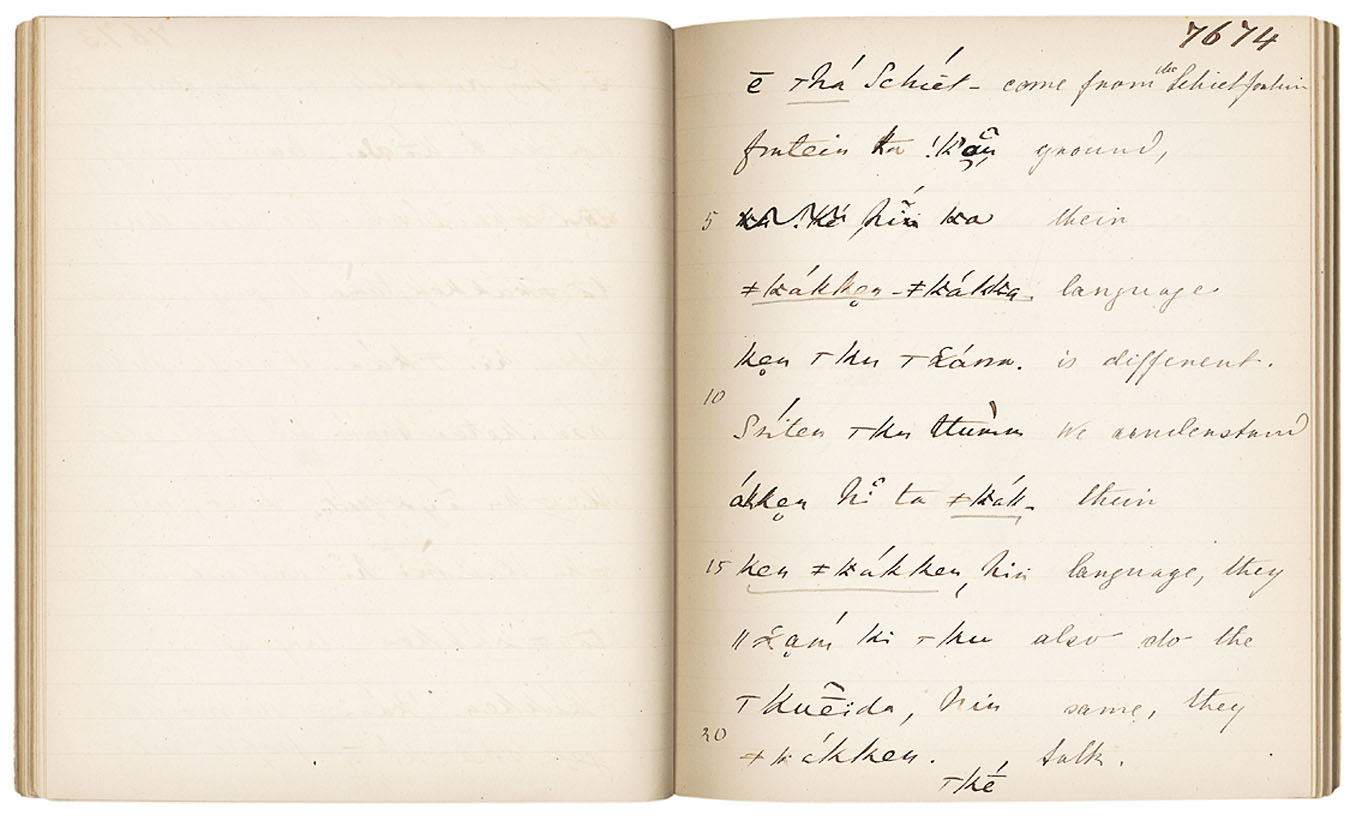 7674
ē ⊤há Schiét- come from the Schietfontein
fontein ta !kau ground,
5 hín ka their
ǂkákken-ǂkákka. language
ken ⊤ku ⊤χárra. is different.
10
Síten ⊤ku ttumm We understand
ákken hĭ ta ǂkák- their
15 ken ǂkákken, hin language, they
ǁχam ki ⊤ku also do the
⊤kuēida, hin same, they
20 ǂkákken. talk.
⊤ké